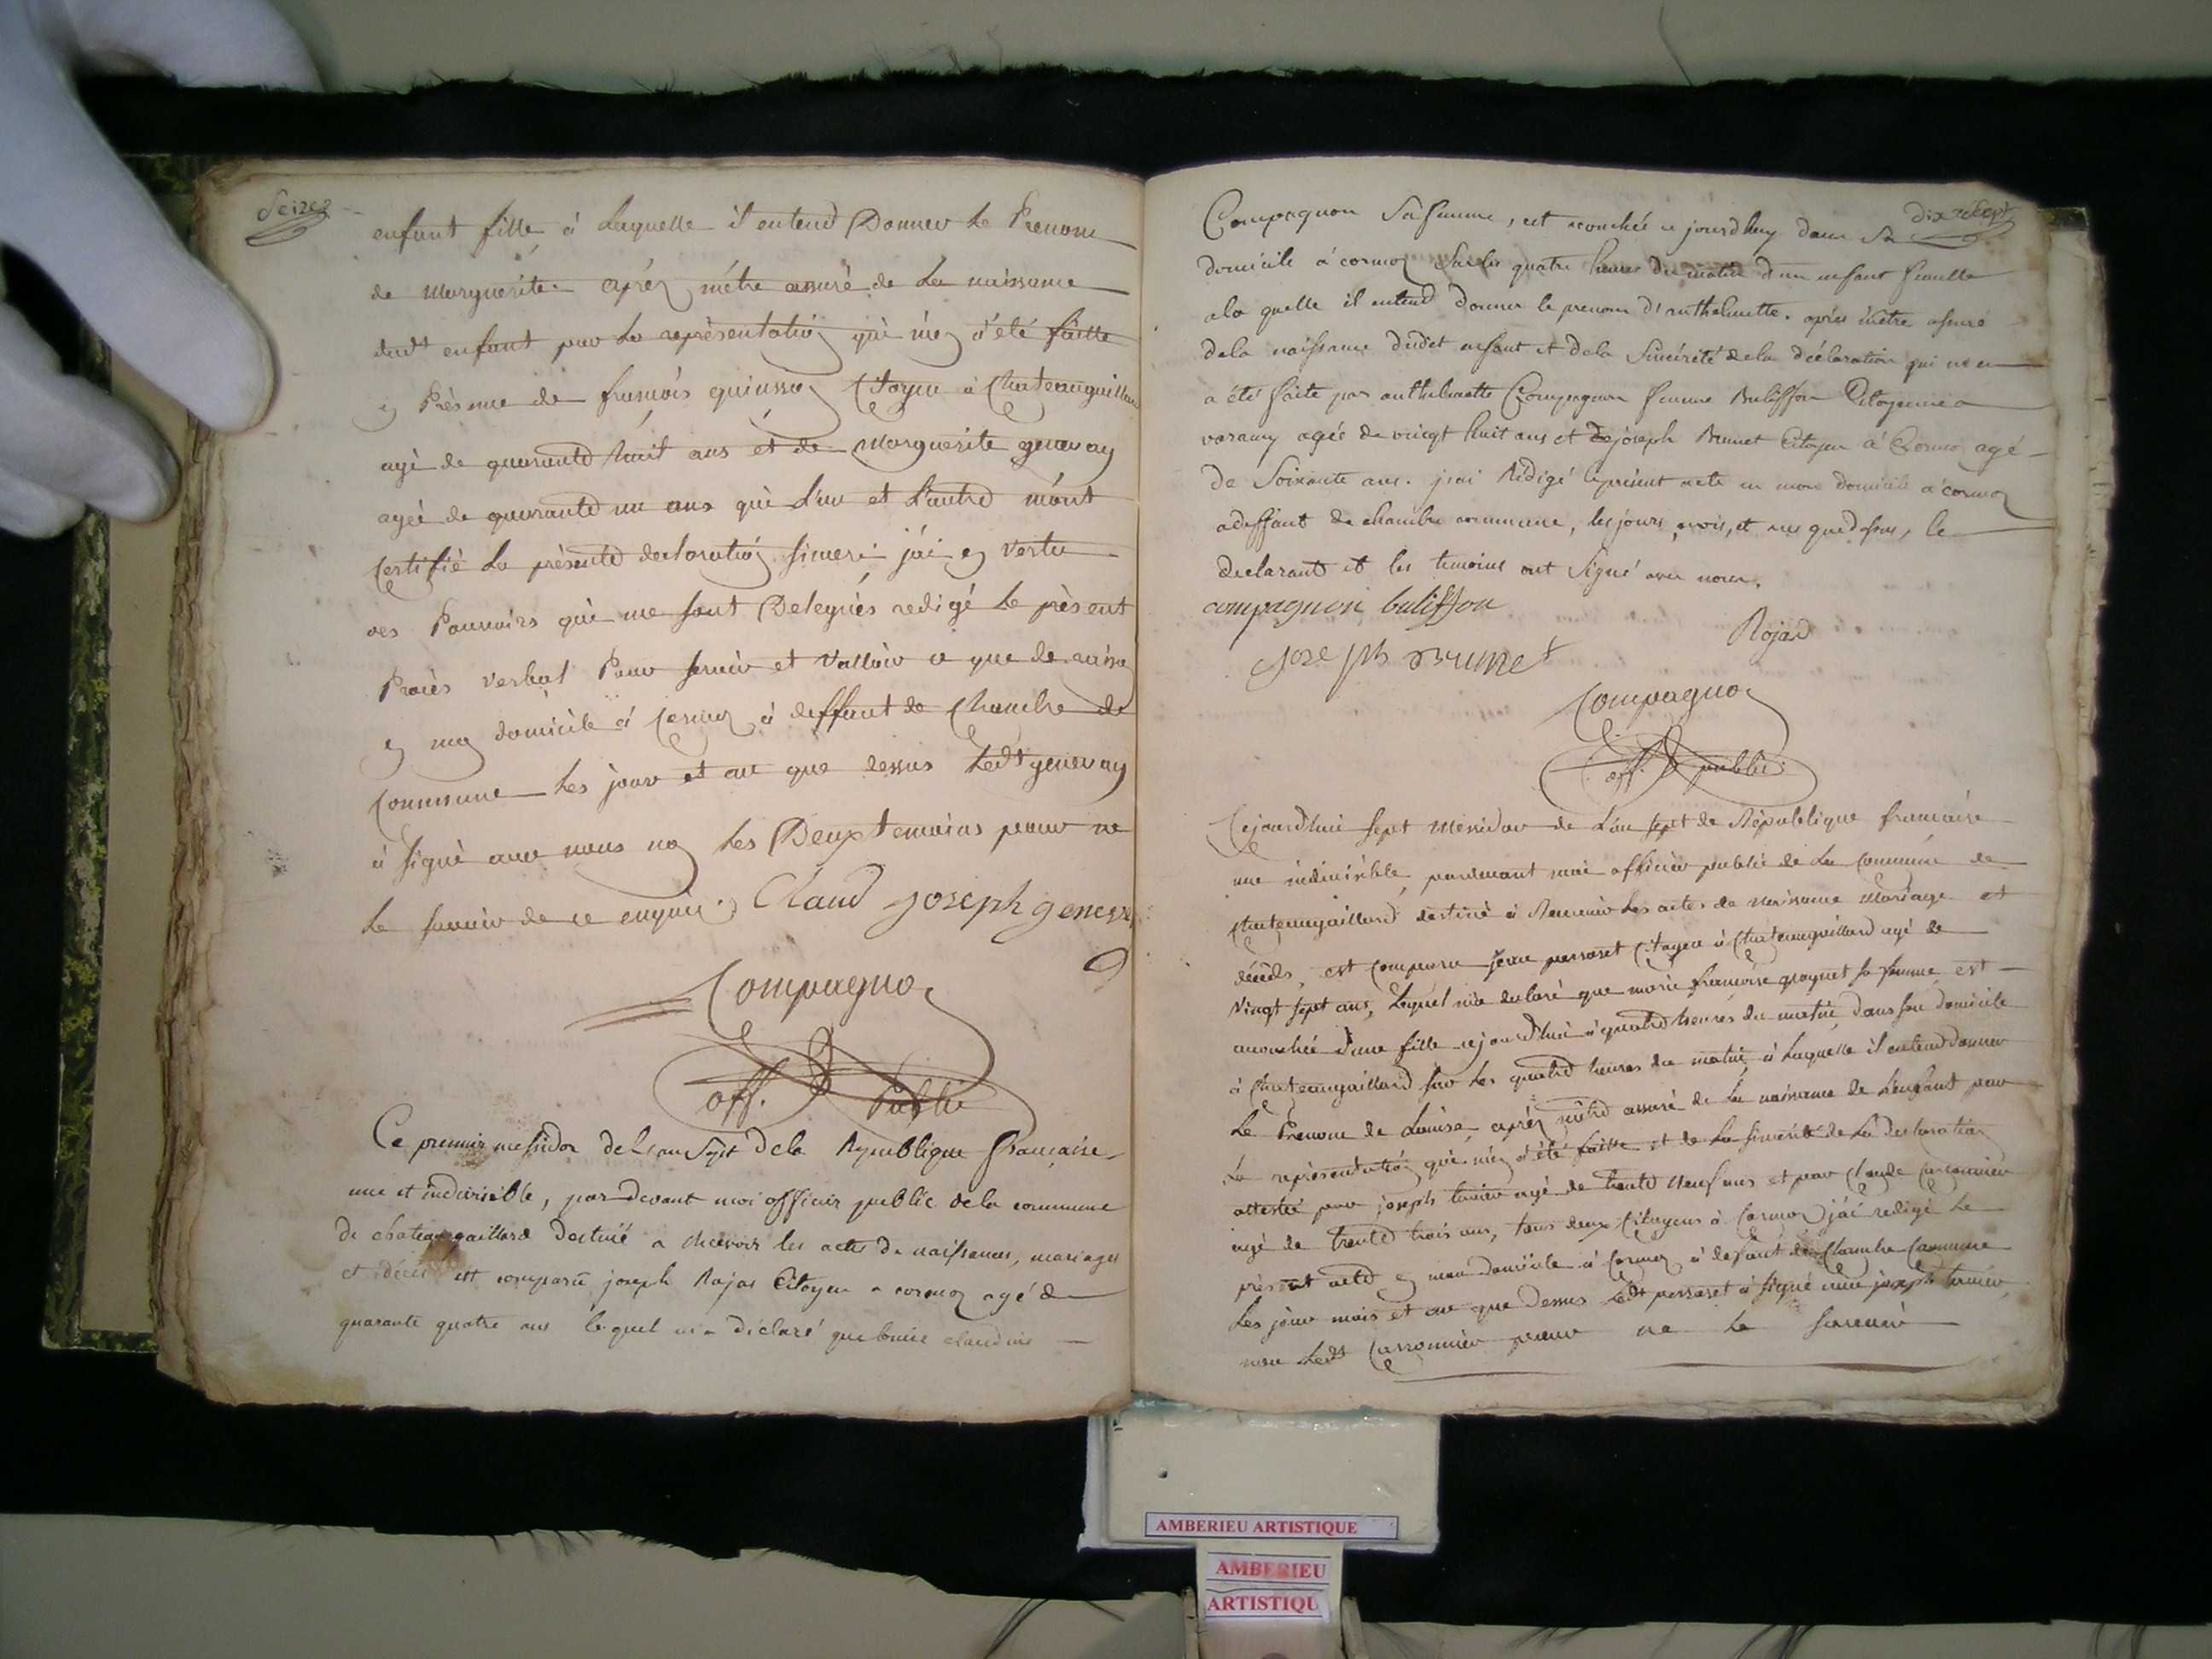 Seize
enfant fille, à Laquelle il entend Donner Le Prenom
de Marguerite. après m'etre assuré de La naissance
dudt enfant par La représentation qui m'en a été faitte
en Présence de francois quinsson Citoyen à Chateaugaillard
agé de quarante huit ans et de Marguerite genevay
ageé de quarante un ans qui L'un et L'autre m'ont
Certifié La présente declaration sincere. j'ai en vertu
des Pouvoirs qui me sont Delegués redigé Le présent
Procès verbal Pour servir et valloir ce que de raison
en mon domicile à Cormoz à deffaut de Chambre de
Commune Les jour et an que dessus Ledt genevay
à signé avec nous non Les Deux temoins pour ne
Le savoir de ce enquis. Claud joseph genevay
Compagnon
off. Public
Ce premier messidor de L'an Sept de la Republique francaise
une et indivisible, par devant moi officier public de la commune
de chateaugaillard destiné a recevoir les actes de naissances, mariages
et décès est comparu joseph Rojas Citoyen a cormoz agé de
quarante quatre ans lequel m'a déclaré que louise claudine
dix sept
Compagnon Sa femme, est acouchée ce jourdhuy dans Sa
domicile a cormoz Sur les quatre heures du matin d'un enfant femelle
a la quelle il entend donner le prenom d'anthelmette. après m'etre assuré
de la naissance dudet enfant et de la Sincérité de la déclaration qui m'en
a été faite par anthelmette Compagnon femme Buliffon Citoyenne a
varamy agée de vingt huit ans et de joseph Brunet Citoyen a Cormoz agé
de Soixante ans. j'ai Rédigé le présent acte en mon domicile a cormoz
a deffaut de chambre commune, les jours, mois, et an que dessus, le
declarant et les temoins ont Signé avec nous.
compagnon buliffon
Rojas
Joseph Brunet
Compagnon
off. public
Cejourdhui sept Messidor de L'an sept de République francaise
une indivisible, pardevant moi officier public de La Commune de
Chateaugaillard destiné à Recevoir Les actes de naissance Mariage et
décès, est Comparu jean parraset Citoyen à Chateaugaillard agé de
Vingt sept ans, Lequel m'a declaré que marie francoise graynet sa femme est
accouchée d'une fille cejourdhui à quatre heures du matin, dans son domicile
à Chateaugaillard sur Les quatre heures du matin, à Laquelle il entend donner
Le Prenom de Louise, après m'etre assuré de La naissance de L'enfant par
La représentation qui m'en a été faitte et de La sincérité de La declaration
attestée par joseph tenier agé de trente Neuf ans et par Claude Carronnier
agé de trente trois ans, tous deux Citoyens à Cormoz j'ai redigé Le
présent acte en mon domicile à Cormoz à defaut de Chambre Commune
Les jour mois et an que Dessus Ledt parraset à signé avec joseph tenier
non Ledt Carronnier pour ne Le savoir
AMBERIEU ARTISTIQUE
AMBERIEU
ARTISTIQU